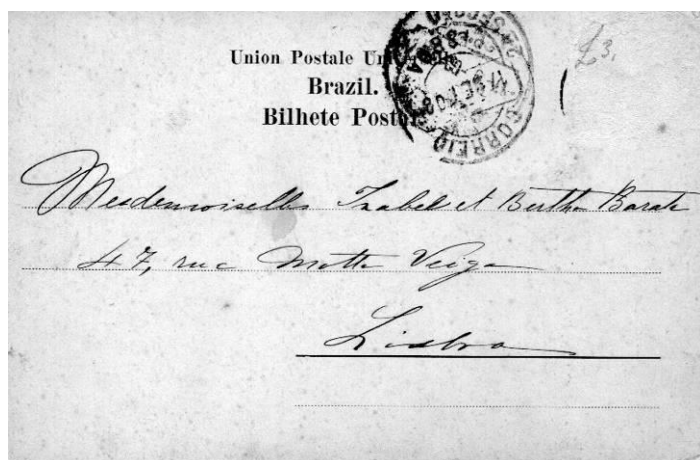 Union Postale
Brazil.
Bilhete Postal
CORREIO
£3.
Mesdemoiselles Izabel et Bertha Barata
47, rue Motta Veiga
Lisboa